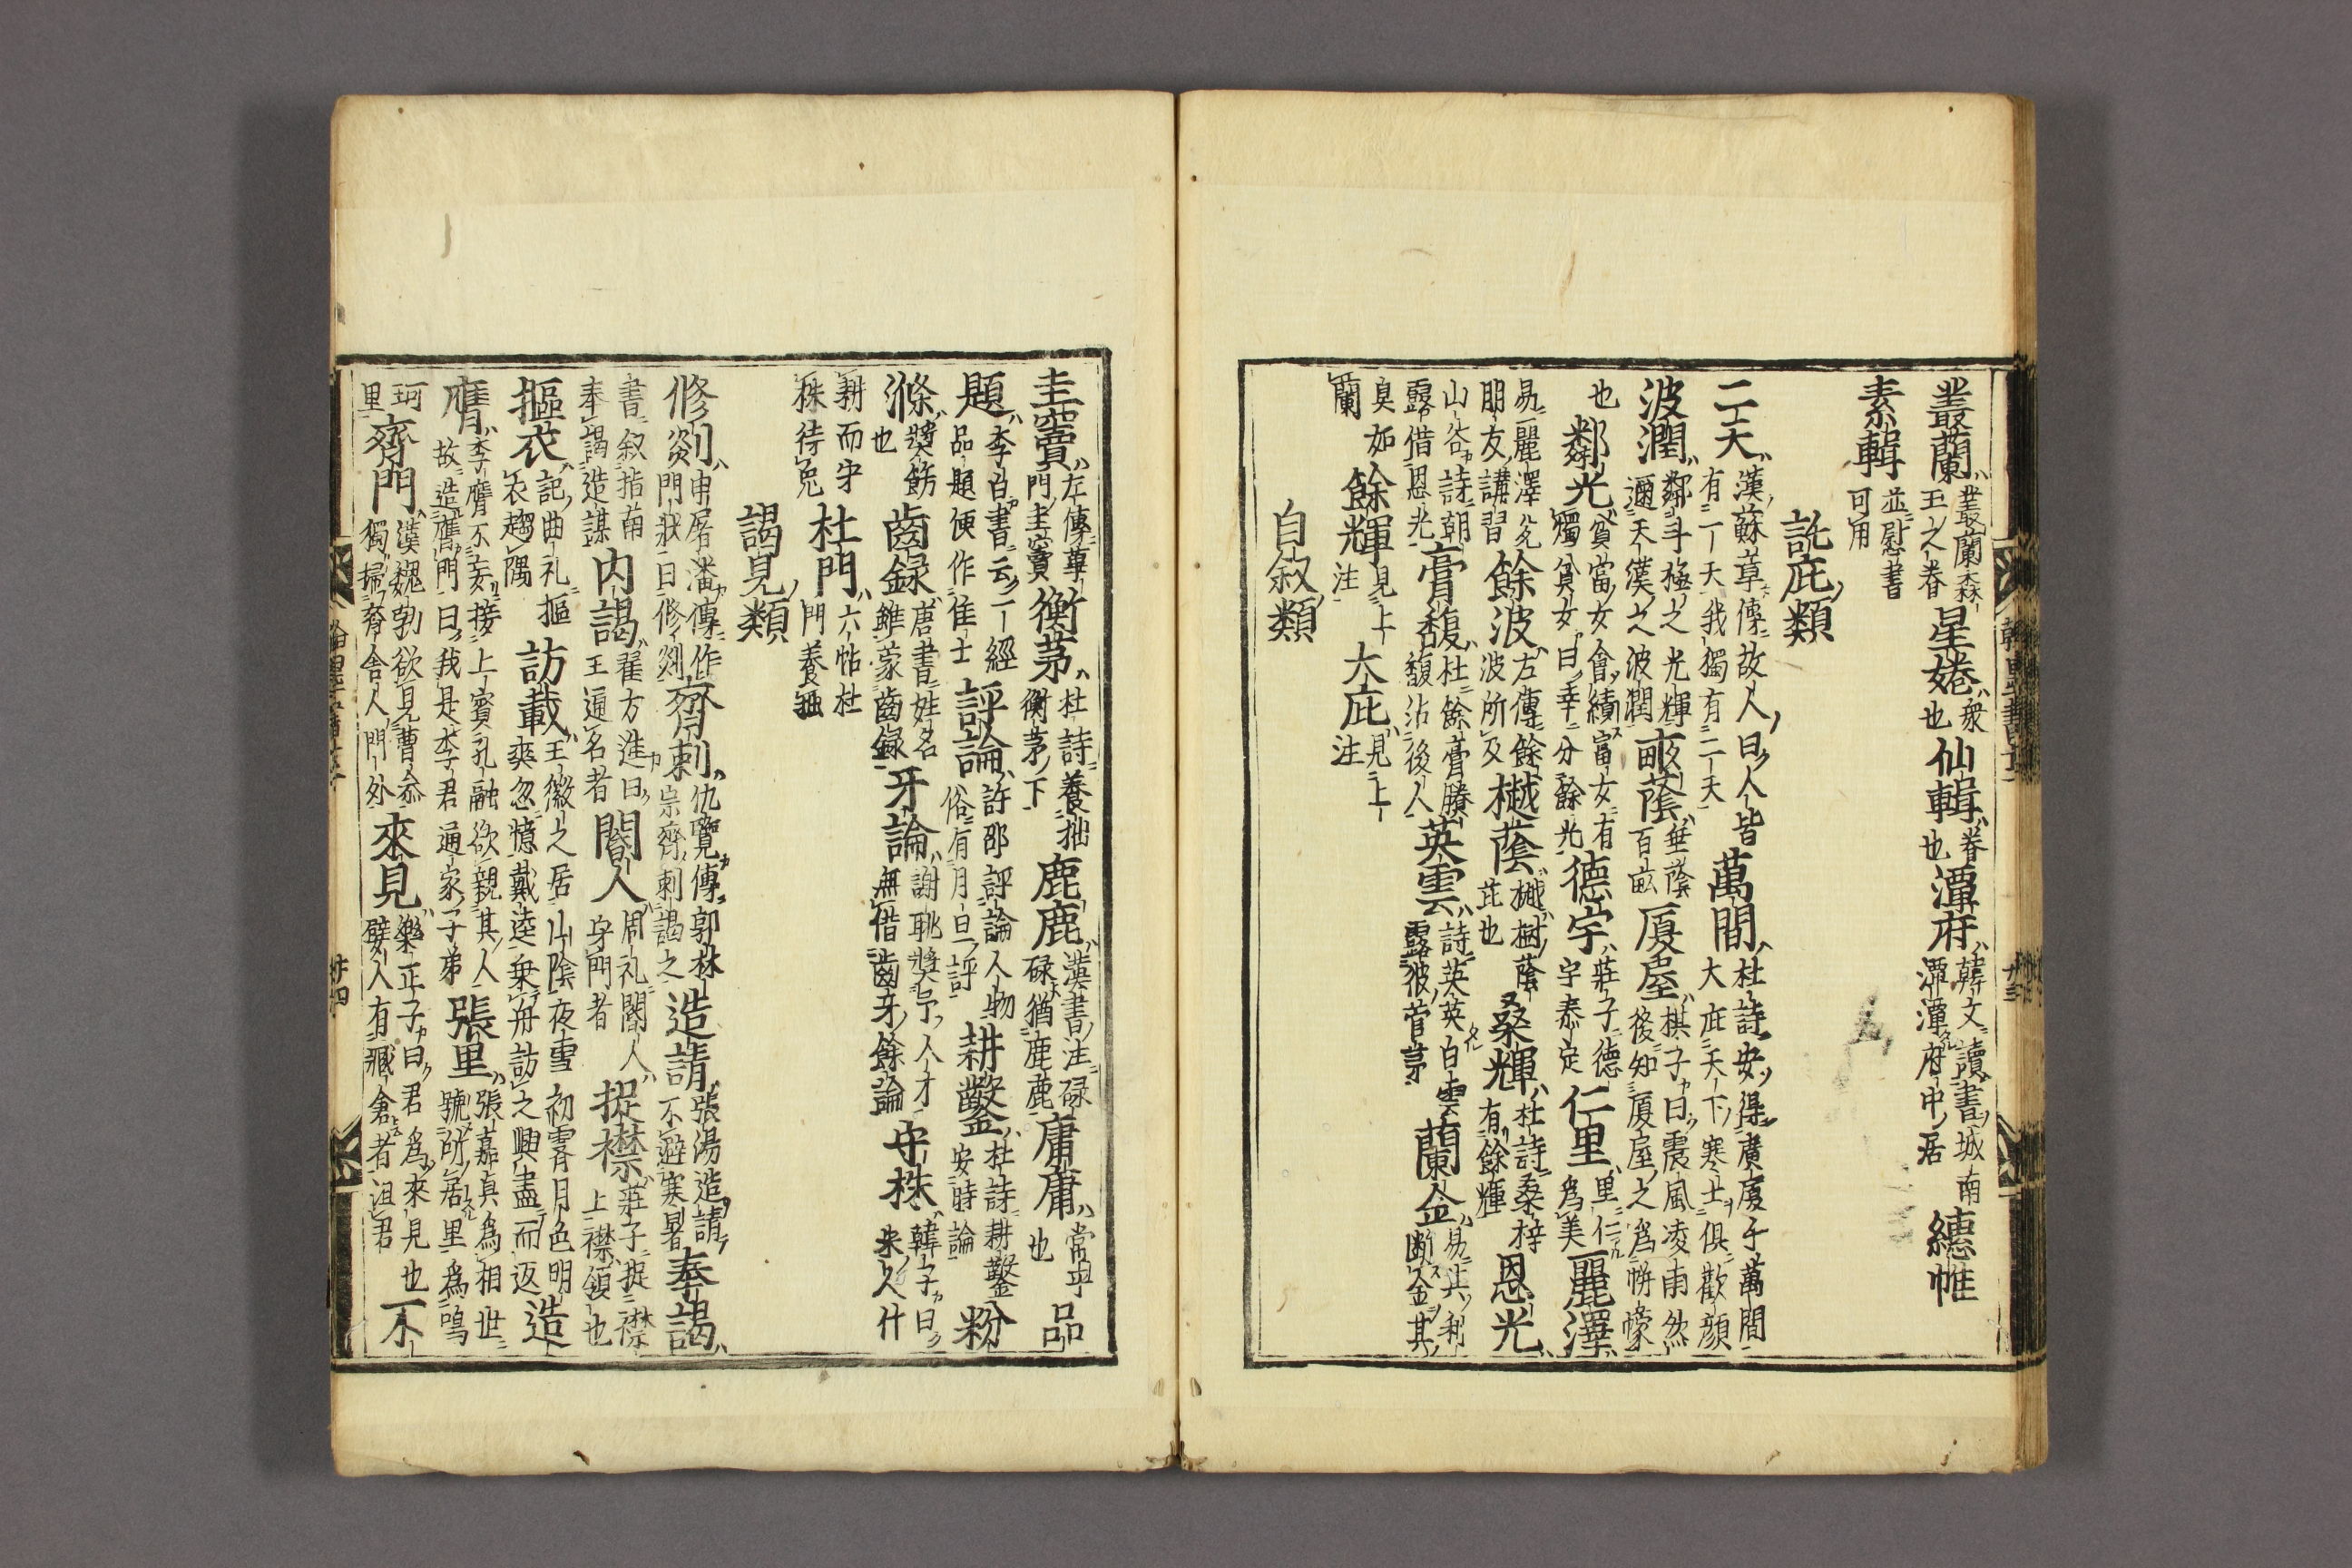 叢蘭叢蘭森王之眷並慰書可用星婘衆也仙輯眷也潭府韓文讀書城南潭潭府中居繐帷
素輯
託庇類
二天漢蘇章傳故人曰人皆有一天我獨有二天萬間杜詩安得廣廈千萬間大庇天下寒士俱歡顔
波潤鄰斗極之光輝邇天漢之波潤畝蔭垂蔭百畝厦屋棋子曰震風凌雨然後知厦屋之為帡幪
也鄰光貧當女會績富女有獨貧女曰幸分餘光德宇莊子德宇泰定仁里里仁為美麗澤
易麗澤兌朋友講習餘波左傳餘波所及樾蔭樾樹蔭茈也桑輝杜詩桑梓有餘輝恩光
山谷詩朝露借恩光膏馥杜餘膏賸馥沾後人英雲詩英英白雲露彼菅茅蘭金易其利斷金其
臭如蘭餘輝見上注大庇見上注
自叙類
圭竇左傳蓽門圭竇衡茅杜詩養拙衡茅下鹿鹿漢書注碌碌猶鹿鹿庸庸常乎也品
題李白書云一經品題便作佳士評論許邵評論人物俗有月旦評耕鑿杜詩耕鑿安時論粉
滌奬飭也齒録唐書姓名雖蒙齒録牙論謝朓奬予人才無借齒牙餘論守株韓子曰宋人什
耕而守株待兎杜門六帖杜門養拙
謁見類
修剡申屠潘傳作門狀曰修剡齊刺仇覽傳郭林宗齊刺謁之造請張湯造請不避寒暑奉謁
書叙指南奉謁造謀内謁翟方進曰王通名者閽人周礼閽人守門者捉襟莊子捉襟上襟領也
摳衣記曲礼摳衣趨隅訪戴王徽之居山陰夜雪初霽月色明爽忽憶戴逵乗舟訪之興盡而返造
膺李膺不妄接上賓孔融欲親其人故造膺門曰我是李君通家子弟張里張嘉貞為相世號所居里為鳴
珂里齊門漢魏勃欲見曹參獨掃齊舎人門外來見樂正子曰君為來見也嬖人有臧倉者沮君不